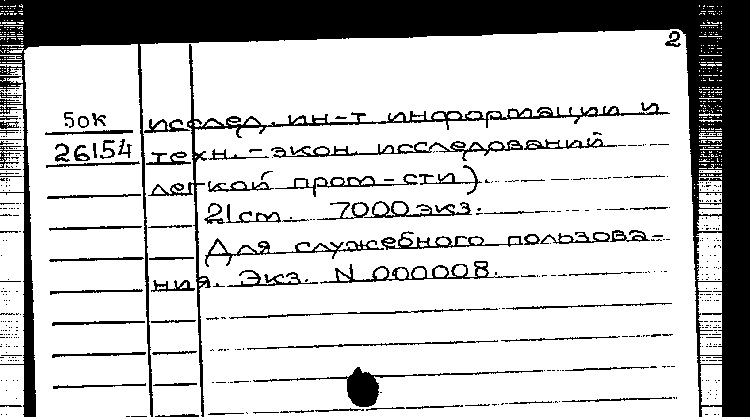 2
50к исслед. ин-т информации и
26154 техн.-экон. исследований
легкой пром-сти).
21 cm. 7000 экз.
Для служебного пользова-
ния. Экз. N 000008.